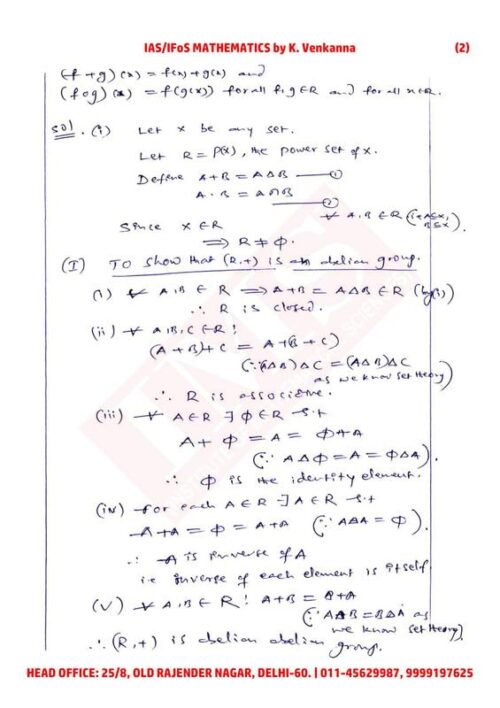 IAS/IFoS MATHEMATICS by K. Venkanna (2)
(f+g)(x) = f(x)+g(x) and
(fog)(x) = f(g(x)) for all f,g∈R and for all x∈R.
Sol. (i) Let X be any set.
Let R = P(X), the power set of X.
Define A+B = AΔB ——①
A·B = A∩B
——②
∀ A,B∈R (i.e A⊆X, B⊆X).
Since X∈R
⟹ R ≠ φ.
(I) To show that (R,+) is an abelian group.
(i) ∀ A,B ∈ R ⟹ A+B = AΔB ∈ R (by ①)
∴ R is closed.
(ii) ∀ A,B,C∈R!
(A+B)+C = A+(B+C)
(∵ (AΔB)ΔC = (AΔB)ΔC
as we know set theory)
∴ R is associative.
(iii) ∀ A∈R ∃ φ∈R s.t
A+φ = A = φ+A
(∵ AΔφ = A = φΔA).
∴ φ is the identity element.
(iv) for each A∈R ∃ A∈R s.t
A+A = φ = A+A (∵ AΔA = φ).
∴ A is inverse of A
i.e inverse of each element is itself.
(v) ∀ A,B∈R! A+B = B+A
(∵ AΔB = BΔA as
we know set theory)
∴ (R,+) is abelian abelian group.
HEAD OFFICE: 25/8, OLD RAJENDER NAGAR, DELHI-60. | 011-45629987, 9999197625